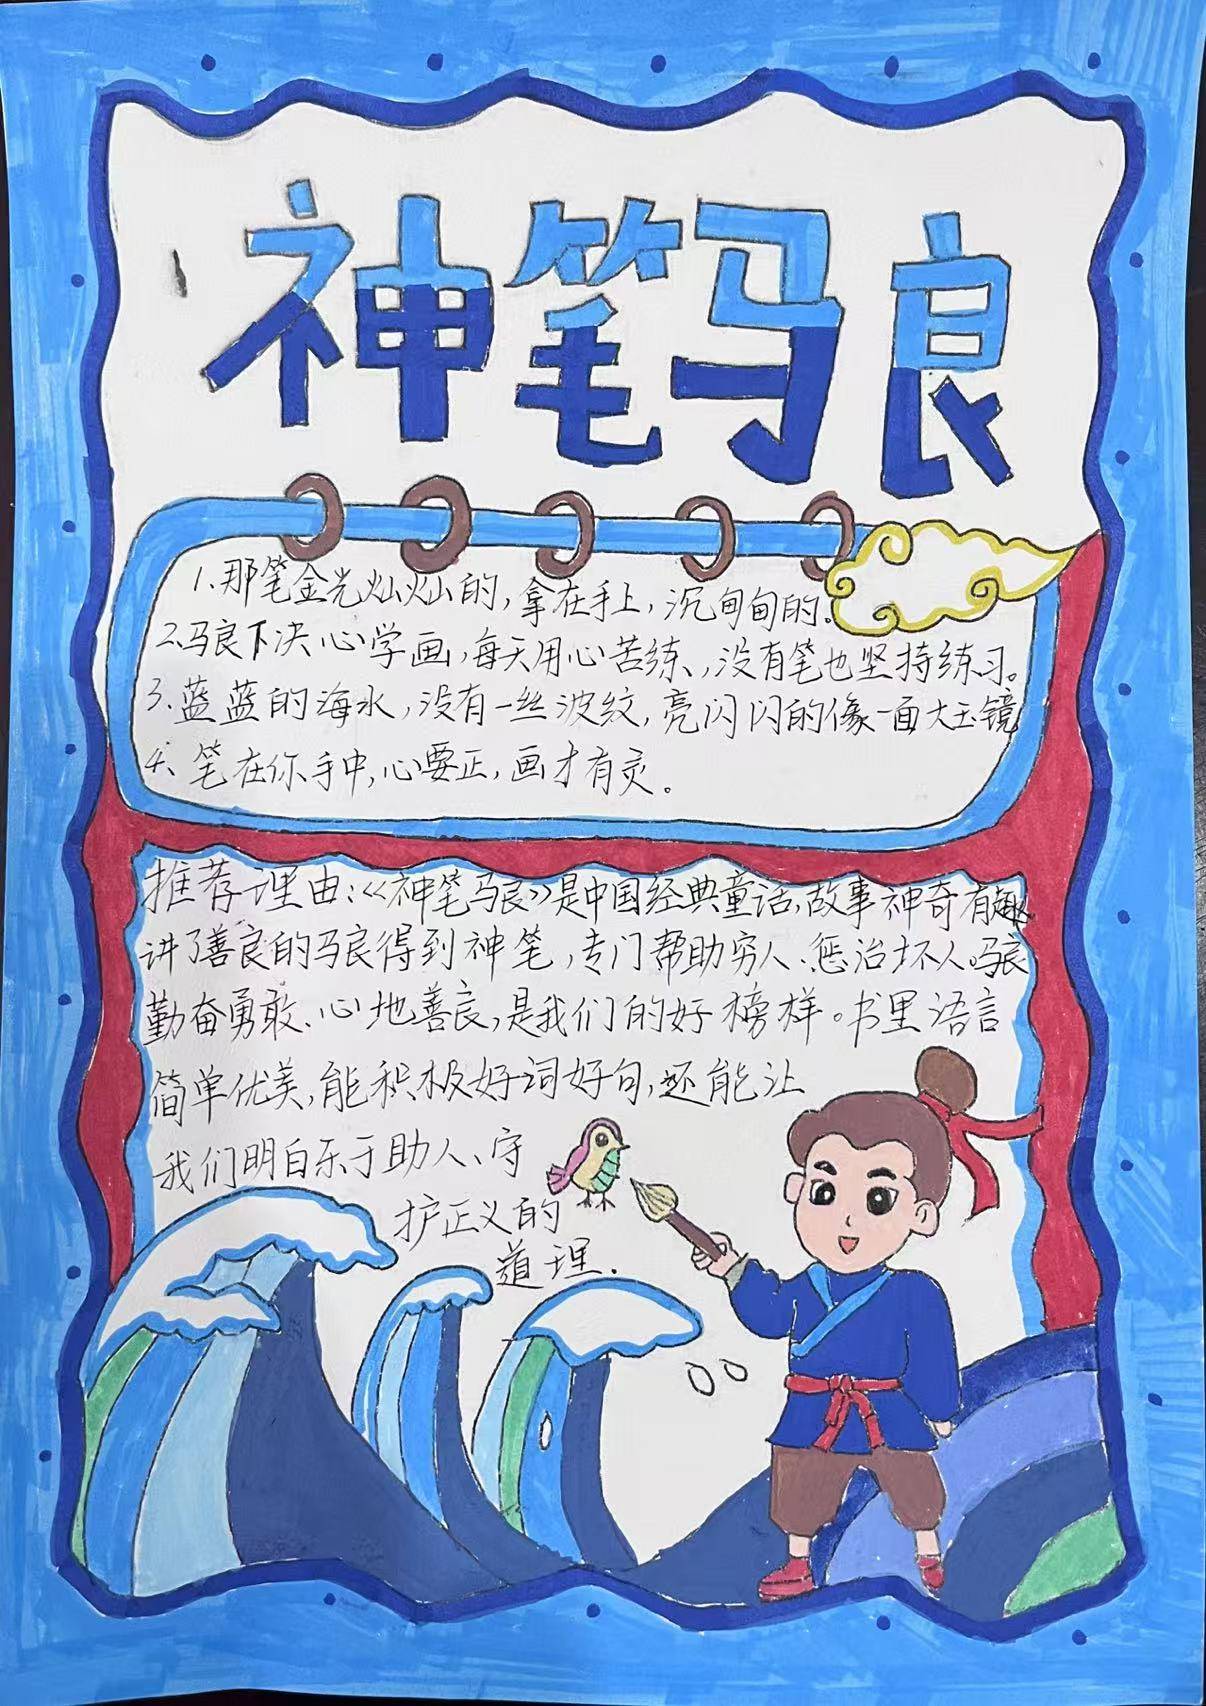 神笔马良
1.那笔金光灿灿的，拿在手上，沉甸甸的。
2.马良下决心学画，每天用心苦练、没有笔也坚持练习。
3.蓝蓝的海水，没有一丝波纹，亮闪闪的像一面大玉镜
4、笔在你手中，心要正，画才有灵。
推荐理由：《神笔马良》是中国经典童话，故事神奇有趣，
讲了善良的马良得到神笔，专门帮助穷人、惩治坏人。马良
勤奋勇敢、心地善良，是我们的好榜样。书里语言
简单优美，能积极好词好句，还能让
我们明白乐于助人、守
护正义的
道理.